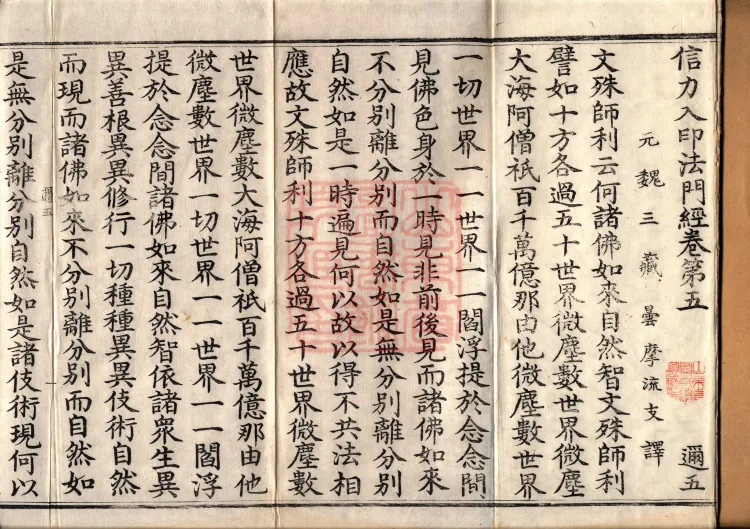 信力入印法門經卷第五 邇五
元魏三藏曇摩流支譯
文殊師利云何諸佛如來自然智文殊師利
譬如十方各過五十世界微塵數世界微塵
大海阿僧祇百千萬億那由他微塵數世界
一切世界一一世界一一閻浮提於念念間
見佛色身於一時見非前後見而諸佛如來
不分別離分別而自然如是無分別離分別
自然如是一時遍見何以故以得不共法相
應故文殊師利十方各過五十世界微塵數
世界微塵數大海阿僧祇百千萬億那由他
微塵數世界一切世界一一世界一一閻浮
提於念念間諸佛如來自然智依諸衆生異
異善根異異修行一切種種異異伎術自然
而現而諸佛如來不分別離分別而自然如
邇五
是無分別離分別自然如是諸伎術現何以